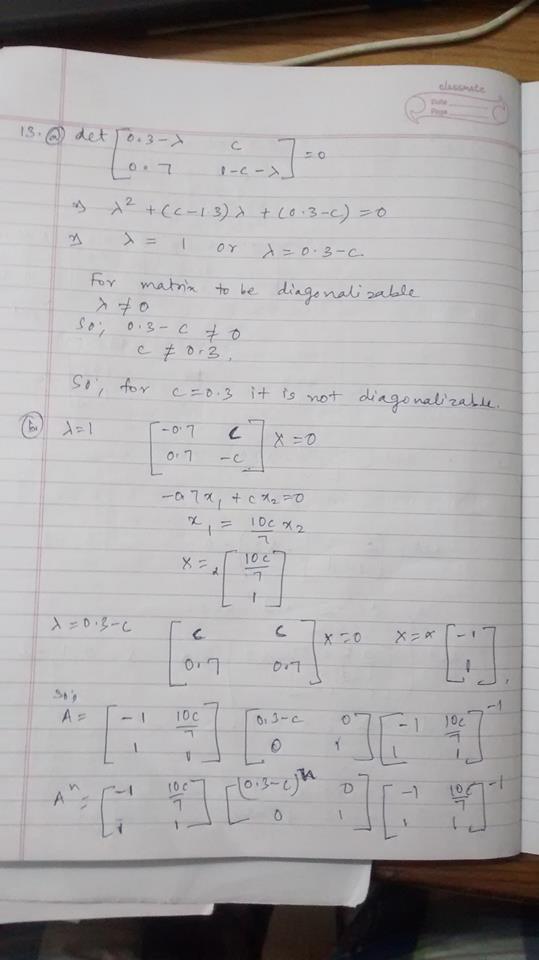 classmate
Date
Page
13. (a) det [0.3-λ c; 0.7 1-c-λ] = 0
⇒ λ² + (c-1.3)λ + (0.3-c) = 0
⇒ λ = 1 or λ = 0.3-c.
For matrix to be diagonalizable
λ ≠ 0
So, 0.3-c ≠ 0
c ≠ 0.3.
So, for c = 0.3 it is not diagonalizable.
(b) λ=1 [-0.7 c; 0.7 -c] X = 0
-0.7x₁ + cx₂ = 0
x₁ = 10c/7 x₂
X = α [10c/7; 1]
λ = 0.3-c [c c; 0.7 0.7] X = 0 X = α [-1; 1],
So,
A = [-1 10c/7; 1 1] [0.3-c 0; 0 1] [-1 10c/7; 1 1]⁻¹
Aⁿ = [-1 10c/7; 1 1] [(0.3-c)ⁿ 0; 0 1] [-1 10c/7; 1 1]⁻¹